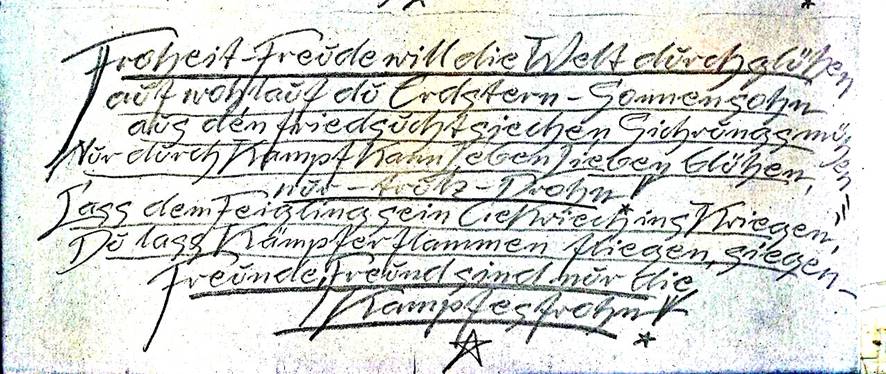 Froheit-Freude will die Welt durchglühen
auf wohlauf du Erdstern-Sonnensohn
aus den friedsuchtsiechen Sichrungsmühen
Nur durch Kampf kann Leben Lieben blühen,
nur -
Lass dem Feigling sein Gekriech ins Kriegen,
Du lass Kämpferflammen fliegen, siegen-
Freunde, Freund sind nur die
Kampfesfrohn!